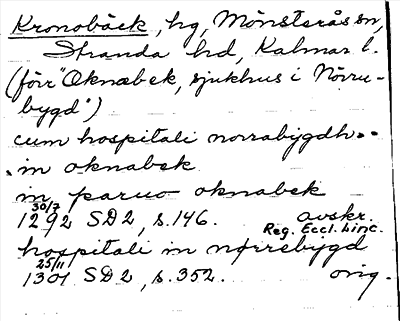 Kronobäck, hg, Mönsterås sn,
Stranda hd, Kalmar l.
(förr "Oknæbek, sjukhus i Norra-
bygd")
cum hospitali norrabygdh..
.in oknabek
in paruo oknabek
30/7
1292 SD2, s.146. avskr.
Reg. Eccl. Linc.
hospitali in nørrebygd
25/11
1301 SD2, s.352. orig.